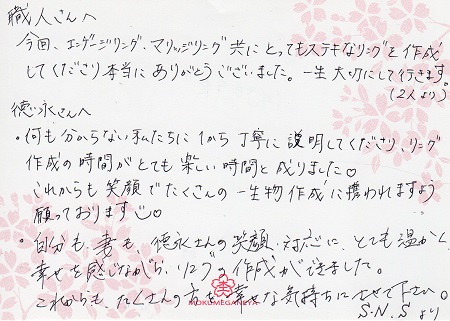 職人さんへ
今回、エンゲージリング、マリッジリング共にとってもステキなリングを作成
してくださり本当にありがとうございました。一生大切にして行きます。
(2人より)
徳永さんへ
・何も分からない私たちに1から丁寧に説明してくださり、リング
作成の時間がとても楽しい時間と成りました♡
これからも笑顔でたくさんの一生物作成に携われますよう
願っております♡
・自分も、妻も、徳永さんの笑顔・対応に、とても温かく
幸せを感じながら、リングの作成ができました。
これからも、たくさんの方を幸せな気持ちにさせて下さい。
MOKUMEGANEYA
S.N.Sより